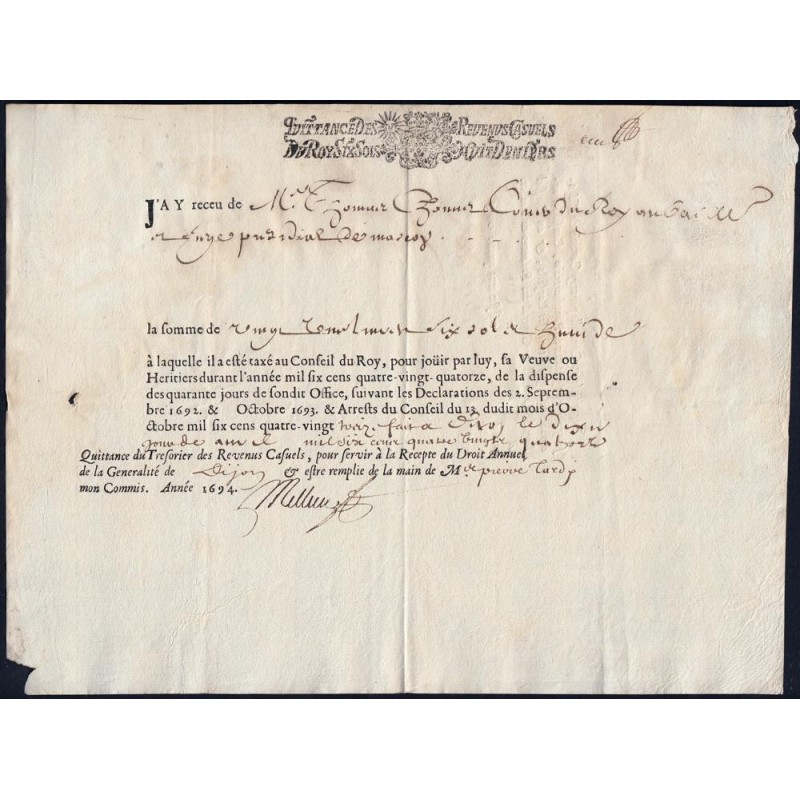 QUITTANCE DES REVENUS CASUELS
DU ROY SIX SOLS HUIT DENIERS
J'AY receu de Mre Conser du Roy au
et siege presidial de mascon
la somme de vingt six sol et huit de
à laquelle il a esté taxé au Conseil du Roy, pour joüir par luy, sa Veuve ou
Heritiers durant l'année mil six cens quatre-vingt-quatorze, de la dispense
des quarante jours de sondit Office, suivant les Declarations des 2. Septem-
bre 1692. & Octobre 1693. & Arrests du Conseil du 13. dudit mois d'O-
ctobre mil six cens quatre-vingt treize fait a Dijon le
jour de mil six cens quatre vingts quatorze
Quittance du Tresorier des Revenus Casuels, pour servir à la Recepte du Droit Annuel
de la Generalité de Dijon & estre remplie de la main de Me pierre Tardy
mon Commis. Année 1694.